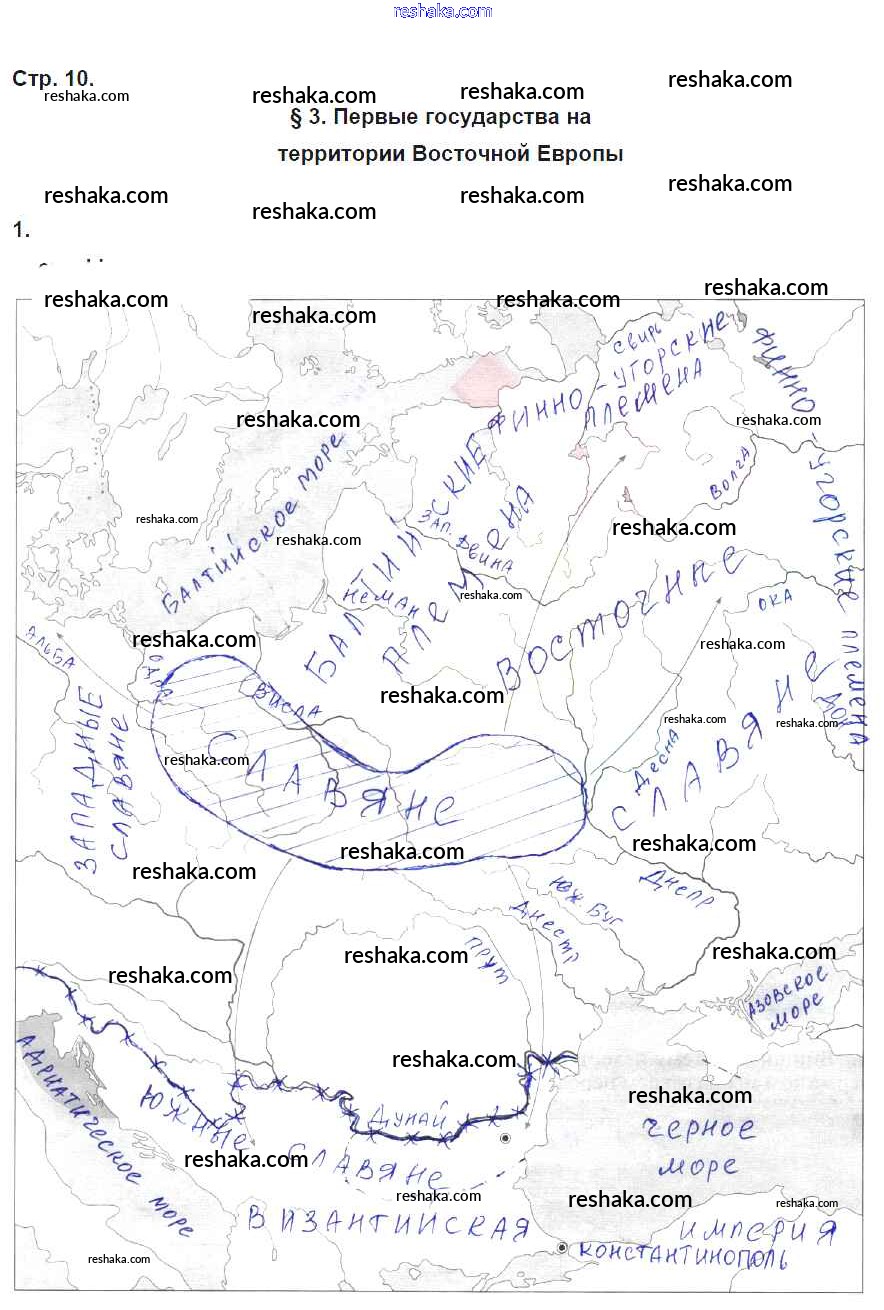 reshaka.com
Стр. 10.
reshaka.com
reshaka.com
reshaka.com
reshaka.com
§ 3. Первые государства на
территории Восточной Европы
reshaka.com
reshaka.com
reshaka.com
reshaka.com
1.
reshaka.com
reshaka.com
reshaka.com
reshaka.com
СВИРЬ
ФИННО-УГОРСКИЕ
ПЛЕМЕНА
ФИННО-УГОРСКИЕ ПЛЕМЕНА
reshaka.com
reshaka.com
БАЛТИЙСКОЕ МОРЕ
ВОЛГА
reshaka.com
reshaka.com
reshaka.com
БАЛТИЙСКИЕ
ПЛЕМЕНА
ЗАП. ДВИНА
НЕМАН
reshaka.com
ОКА
АЛЬБА
reshaka.com
reshaka.com
ОДРА
ВИСЛА
reshaka.com
ВОСТОЧНЫЕ
СЛАВЯНЕ
reshaka.com
reshaka.com
ДОН
ЗАПАДНЫЕ
СЛАВЯНЕ
reshaka.com
СЛАВЯНЕ
ДЕСНА
reshaka.com
reshaka.com
reshaka.com
ДНЕПР
ЮЖ. БУГ
ДНЕСТР
ПРУТ
reshaka.com
reshaka.com
reshaka.com
АЗОВСКОЕ
МОРЕ
АДРИАТИЧЕСКОЕ МОРЕ
reshaka.com
reshaka.com
ДУНАЙ
ЮЖНЫЕ
СЛАВЯНЕ
ЧЕРНОЕ
МОРЕ
reshaka.com
reshaka.com
reshaka.com
reshaka.com
ВИЗАНТИЙСКАЯ ИМПЕРИЯ
КОНСТАНТИНОПОЛЬ
reshaka.com